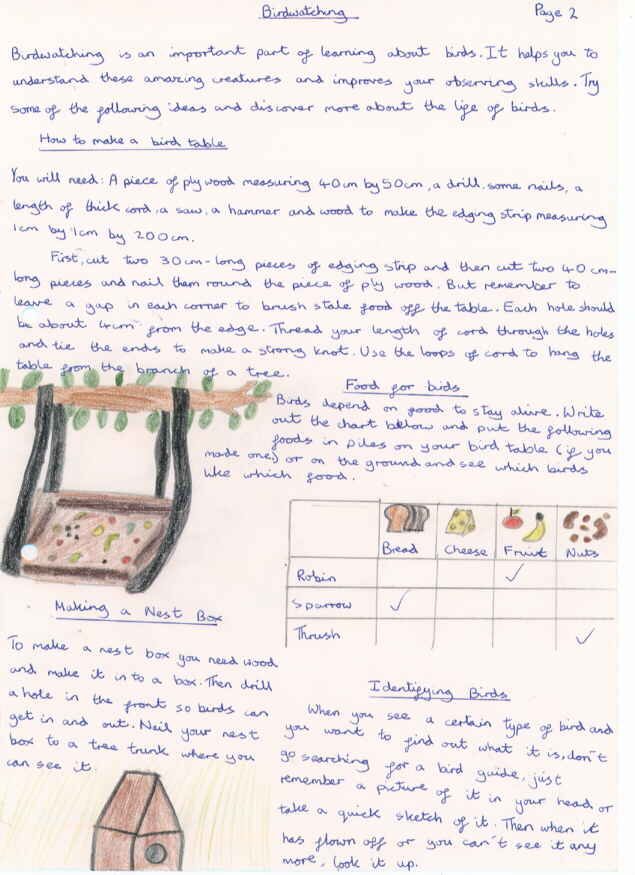 Birdwatching
Page 2
Birdwatching is an important part of learning about birds. It helps you to
understand these amazing creatures and improves your observing skills. Try
some of the following ideas and discover more about the life of birds.
How to make a bird table
You will need: A piece of plywood measuring 40cm by 50cm, a drill, some nails, a
length of thick cord, a saw, a hammer and wood to make the edging strip measuring
1cm by 1cm by 200cm.
First, cut two 30cm-long pieces of edging strip and then cut two 40cm-
long pieces and nail them round the piece of ply wood. But remember to
leave a gap in each corner to brush stale food off the table. Each hole should
be about 4cm from the edge. Thread your length of cord through the holes
and tie the ends to make a strong knot. Use the loops of cord to hang the
table from the branch of a tree.
Food for bids
Birds depend on food to stay alive. Write
out the chart below and put the following
foods in piles on your bird table (if you
made one) or on the ground and see which birds
like which food.
Bread Cheese Fruit Nuts
Robin ✓
Sparrow ✓
Thrush ✓
Making a Nest Box
To make a nest box you need wood
and make it in to a box. Then drill
a hole in the front so birds can
get in and out. Neil your nest
box to a tree trunk where you
can see it.
Identifying Birds
When you see a certain type of bird and
you want to find out what it is, don't
go searching for a bird guide, just
remember a picture of it in your head or
take a quick sketch of it. Then when it
has flown off or you can't see it any
more, look it up.